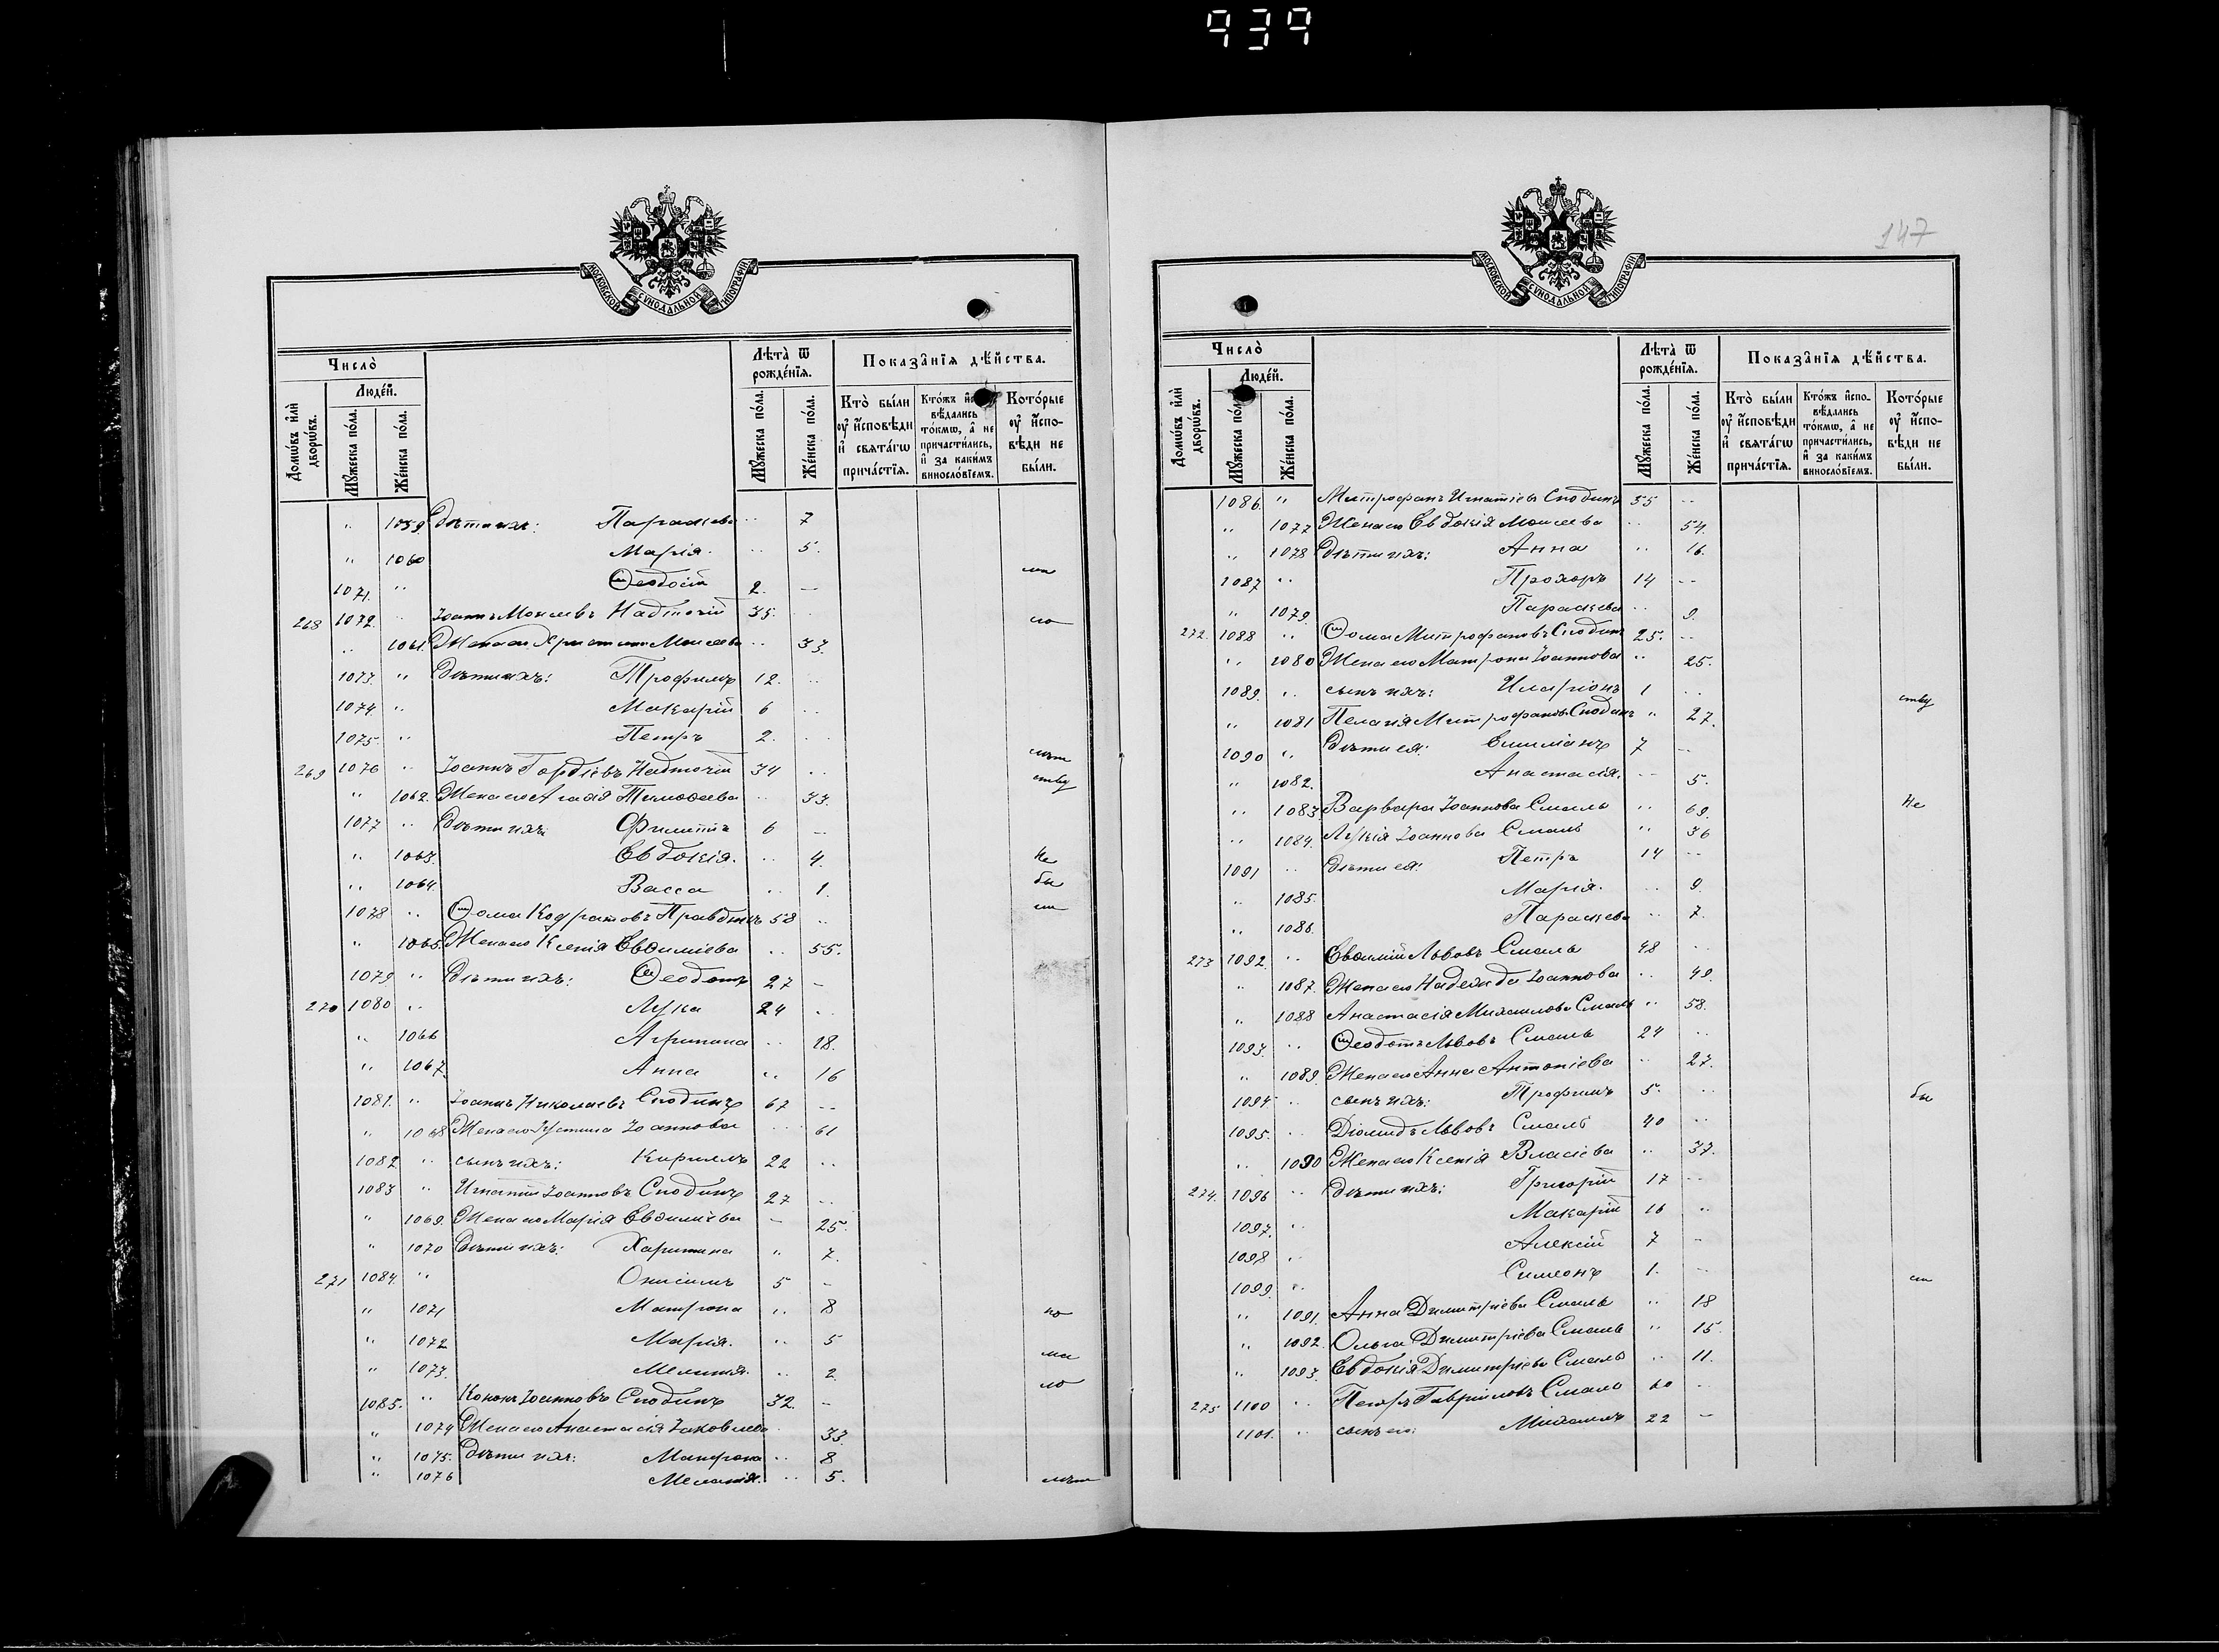 939
147
МОСКОВСКОЙ СѴНОДАЛЬНОЙ ТИПОГРАФІИ
Число̀
Домѡ́въ и҆лѝ дворѡ́въ.
Люде́й.
Мꙋ́жеска по́ла.
Же́нска по́ла.
Лѣ́та̀ ѿ рожде́нїѧ.
Мꙋ́жеска по́ла.
Же́нска по́ла.
Показа̂нїѧ дѣ́йства.
Кто̀ бы́ли оу҆ и҆́сповѣди и҆ свѧта́гѡ прича́стїѧ.
Кто́жъ и҆сповѣ́дались то́кмѡ, а҆ не причасти́лись, и҆ за каки́мъ винослó́вїемъ.
Кото́рые оу҆ и҆́сповѣди не бы́ли.
" 1059 Дѣти ихъ: Параскева .. 7
" 1060 Марія. .. 5.
1071. " Ѳеодосій 2. —
268 1072. .. Іоаннъ Моисеевъ Надточій 35. ..
.. 1061. Жена его Христина Моисеева .. 33.
1073. " Дѣти ихъ: Трофимъ 12. ..
1074. " Макарій 6 ..
1075. " Петръ 2. ..
269 1076 .. Іоаннъ Гордіевъ Надточій 34 ..
" 1062. Жена его Агафія Тимоѳеева .. 33.
1077 .. Дѣти ихъ: Филиппъ 6 —
" 1063. Евдокія. .. 4. Не
" 1064. Васса .. 1. бы
1078 .. Ѳома Кодратовъ 58 ..
" 1065. Жена его Ксенія Евѳиміева .. 55.
1079 " Дѣти ихъ: Ѳеодотъ 27 —
270 1080 .. Лука 24 ..
" 1066 Агрипина .. 18.
" 1067. Анна .. 16
1081. " Іоаннъ Николаевъ Сподинъ 67 --
" 1068 Жена его Іустина Іоаннова ... 61
1082 " сынъ ихъ: Кириллъ 22 ..
1083 " Игнатій Іоанновъ Сподинъ 27 ..
" 1069. Жена его Марія Евѳиміева — 25.
" 1070 Дѣти ихъ: Харитина .. 7.
271 1084. " Онисимъ 5 —
" 1071 Матрона .. 8
" 1072 Марія. .. 5
" 1073. Меланія. .. 2.
1085. " Кононъ Іоанновъ Сподинъ 32. —
" 1074 Жена его Анастасія Іаковлева 33.
" 1075. Дѣти ихъ: Матрона .. 8
" 1076 Меланія. .. 5.
Число̀
Домѡ́въ и҆лѝ дворѡ́въ.
Люде́й.
Мꙋ́жеска по́ла.
Же́нска по́ла.
Лѣ́та̀ ѿ рожде́нїѧ.
Мꙋ́жеска по́ла.
Же́нска по́ла.
Показа̂нїѧ дѣ́йства.
Кто̀ бы́ли оу҆ и҆́сповѣди и҆ свѧта́гѡ прича́стїѧ.
Кто́жъ и҆сповѣ́дались то́кмѡ, а҆ не причасти́лись, и҆ за каки́мъ винослó́вїемъ.
Кото́рые оу҆ и҆́сповѣди не бы́ли.
1086. " Митрофанъ Игнатіевъ Сподинъ 55 --
" 1077 Жена его Евдокія Моисеева .. 54.
" 1078 Дѣти ихъ: Анна .. 16.
1087 " Прохоръ 14 --
" 1079. Параскева .. 9.
272. 1088 " Ѳома Митрофановъ Сподинъ 25. --
" 1080 Жена его Матрона Іоаннова .. 25.
1089. .. сынъ ихъ: Иларіонъ 1 ..
" 1081 Пелагія Митрофанова Сподинъ " 27.
1090 " Дѣти ея: Емиліанъ 7 —
" 1082. Анастасія. -- 5.
" 1083. Варвара Іоаннова Смаль .. 69. Не
" 1084. Лукія Іоаннова Смаль .. 36
1091 .. Дѣти ея: Петръ 14 --
" 1085. Марія. .. 9.
" 1086. Параскева .. 7.
273 1092. .. Евѳимій Львовъ Смаль 48 ..
" 1087. Жена его Надежда Іоаннова .. 49.
" 1088 Анастасія Михаилова Смаль .. 58.
1093. .. Ѳеодотъ Львовъ Смаль 24 ..
" 1089. Жена его Анна Антоніева .. 27.
1094. .. сынъ ихъ: Трофимъ 5. .. бы
1095. .. Діомидъ Львовъ Смаль 40 ..
" 1090 Жена его Ксенія Власіева .. 37.
274. 1096 .. Дѣти ихъ: Григорій 17 --
1097. " Макарій 16 ..
1098 " Алексій 7 —
1099. " Симеонъ 1. --
" 1091. Анна Димитріева Смаль .. 18
" 1092. Ольга Димитріева Смаль .. 15.
" 1093. Евдокія Димитріева Смаль .. 11.
275 1100 .. Петръ Гавріиловъ Смаль 60 —
1101. .. сынъ его: Михаилъ 22 —